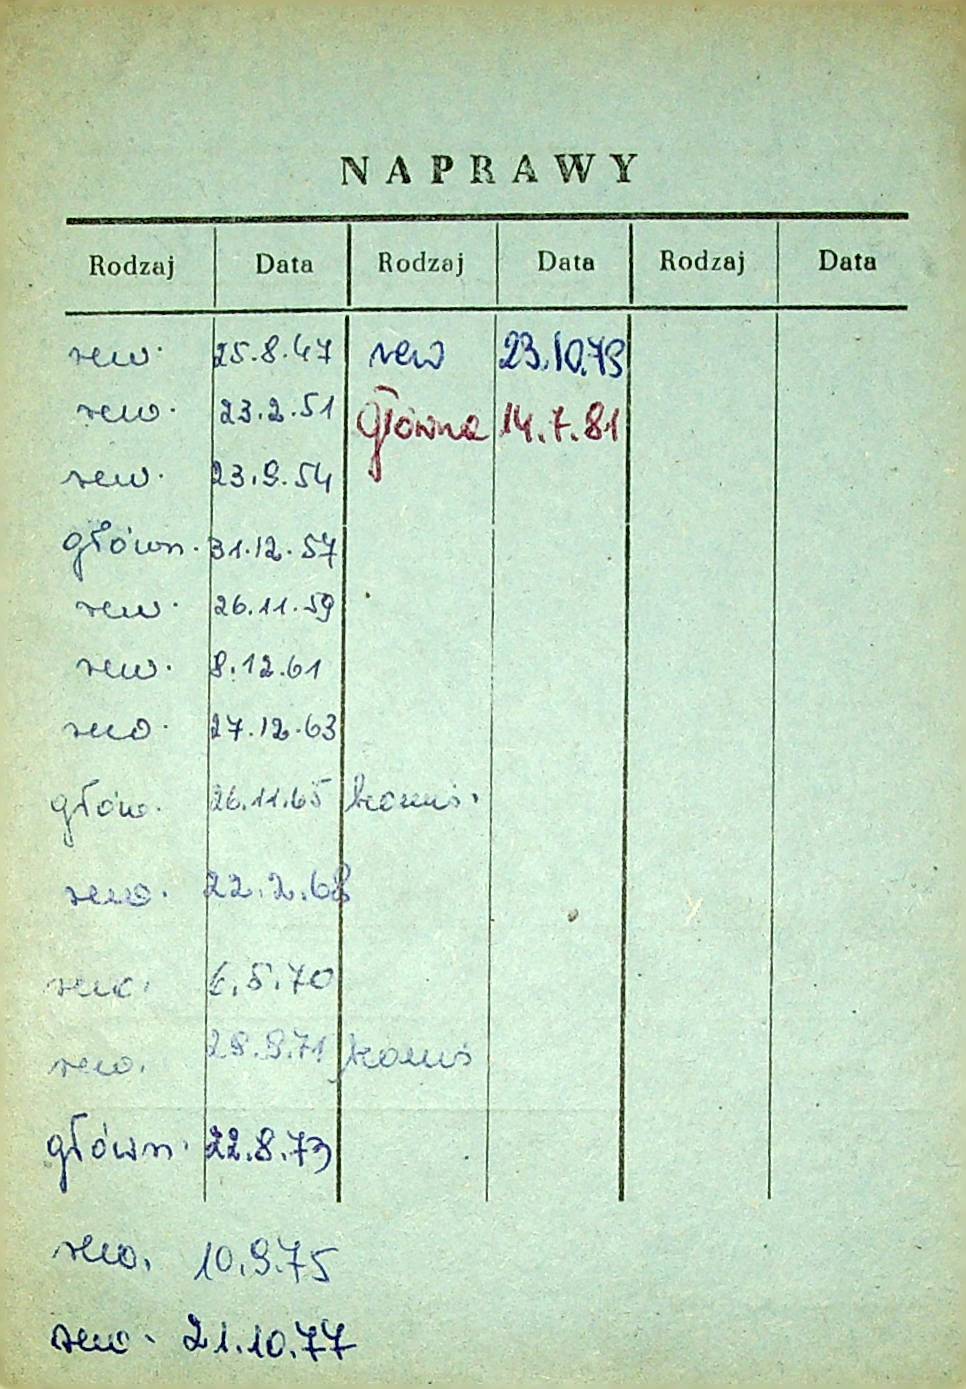 NAPRAWY
Rodzaj Data Rodzaj Data Rodzaj Data
rew. 25.8.47 rew 23.10.79
rew. 23.2.51 Główna 14.7.81
rew. 23.9.54
główn. 31.12.57
rew. 26.11.59
rew. 8.12.61
rew. 27.12.63
głów. 26.11.65 komis.
rew. 22.2.68
rew. 6.5.70
rew. 28.9.71 komis
główn. 22.8.73
rew. 10.9.75
rew. 21.10.77